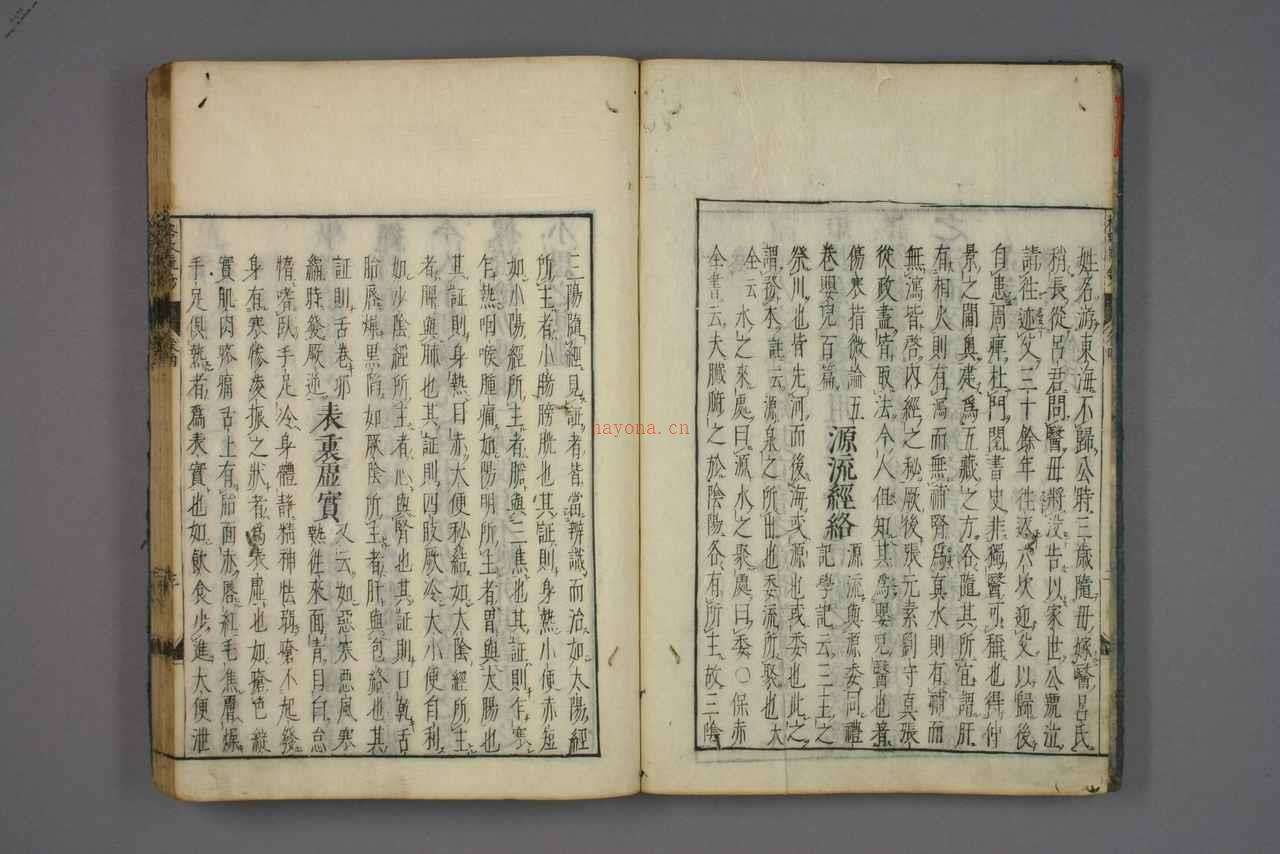 姓名游東海不歸公時三歲隨母嫁醫呂氏
稍長從呂君問醫母將没告以家世公號泣
請往迹父三十餘年往返六次迎父以歸後
自患周痺杜門閱書史非獨醫可稱也得仲
景之閫奥建爲五藏之方各隨其所宜謂肝
有相火則有瀉而無補腎爲真水則有補而
無瀉皆啓内經之秘厥後張元素劉守真張
從政盡皆取法今人但知其爲嬰兒醫也著
傷寒指微論五
卷嬰兒百篇
源流經絡
源流與源委同禮
記學記云三王之
祭川也皆先河而後海或源也或委也此之
謂務本註云源泉之所出也委流所聚也大
全云水之來處曰源水之聚處曰委〇保赤
全書云夫臟腑之於陰陽各有所主故三陰
三陽隨經見証者皆當辨識而治如太陽經
所主者小腸膀胱也其証則身熱小便赤短
如小陽經所主者膽與三焦也其証則乍寒
乍熱咽喉腫痛如陽明所主者胃與大腸也
其証則身熱目赤大便秘結如太陰經所主
者脾與肺也其証則四肢厥冷大小便自利
如少陰經所主者心與腎也其証則口乾舌
胎唇燥黑陷如厥陰所主者肝與包絡也其
証則舌卷卵
縮時發厥逆
表裏虛實
又云如惡寒惡風寒
熱往來面青目白怠
惰嗜臥手足冷身體靜精神怯弱瘡不起發
身有寒慘凌振之狀者爲表虛也如瘡色皺
實肌肉疼痛舌上有胎面赤唇紅毛焦膚燥
手足俱熱者爲表實也如飲食少進大便泄
nayona.cn